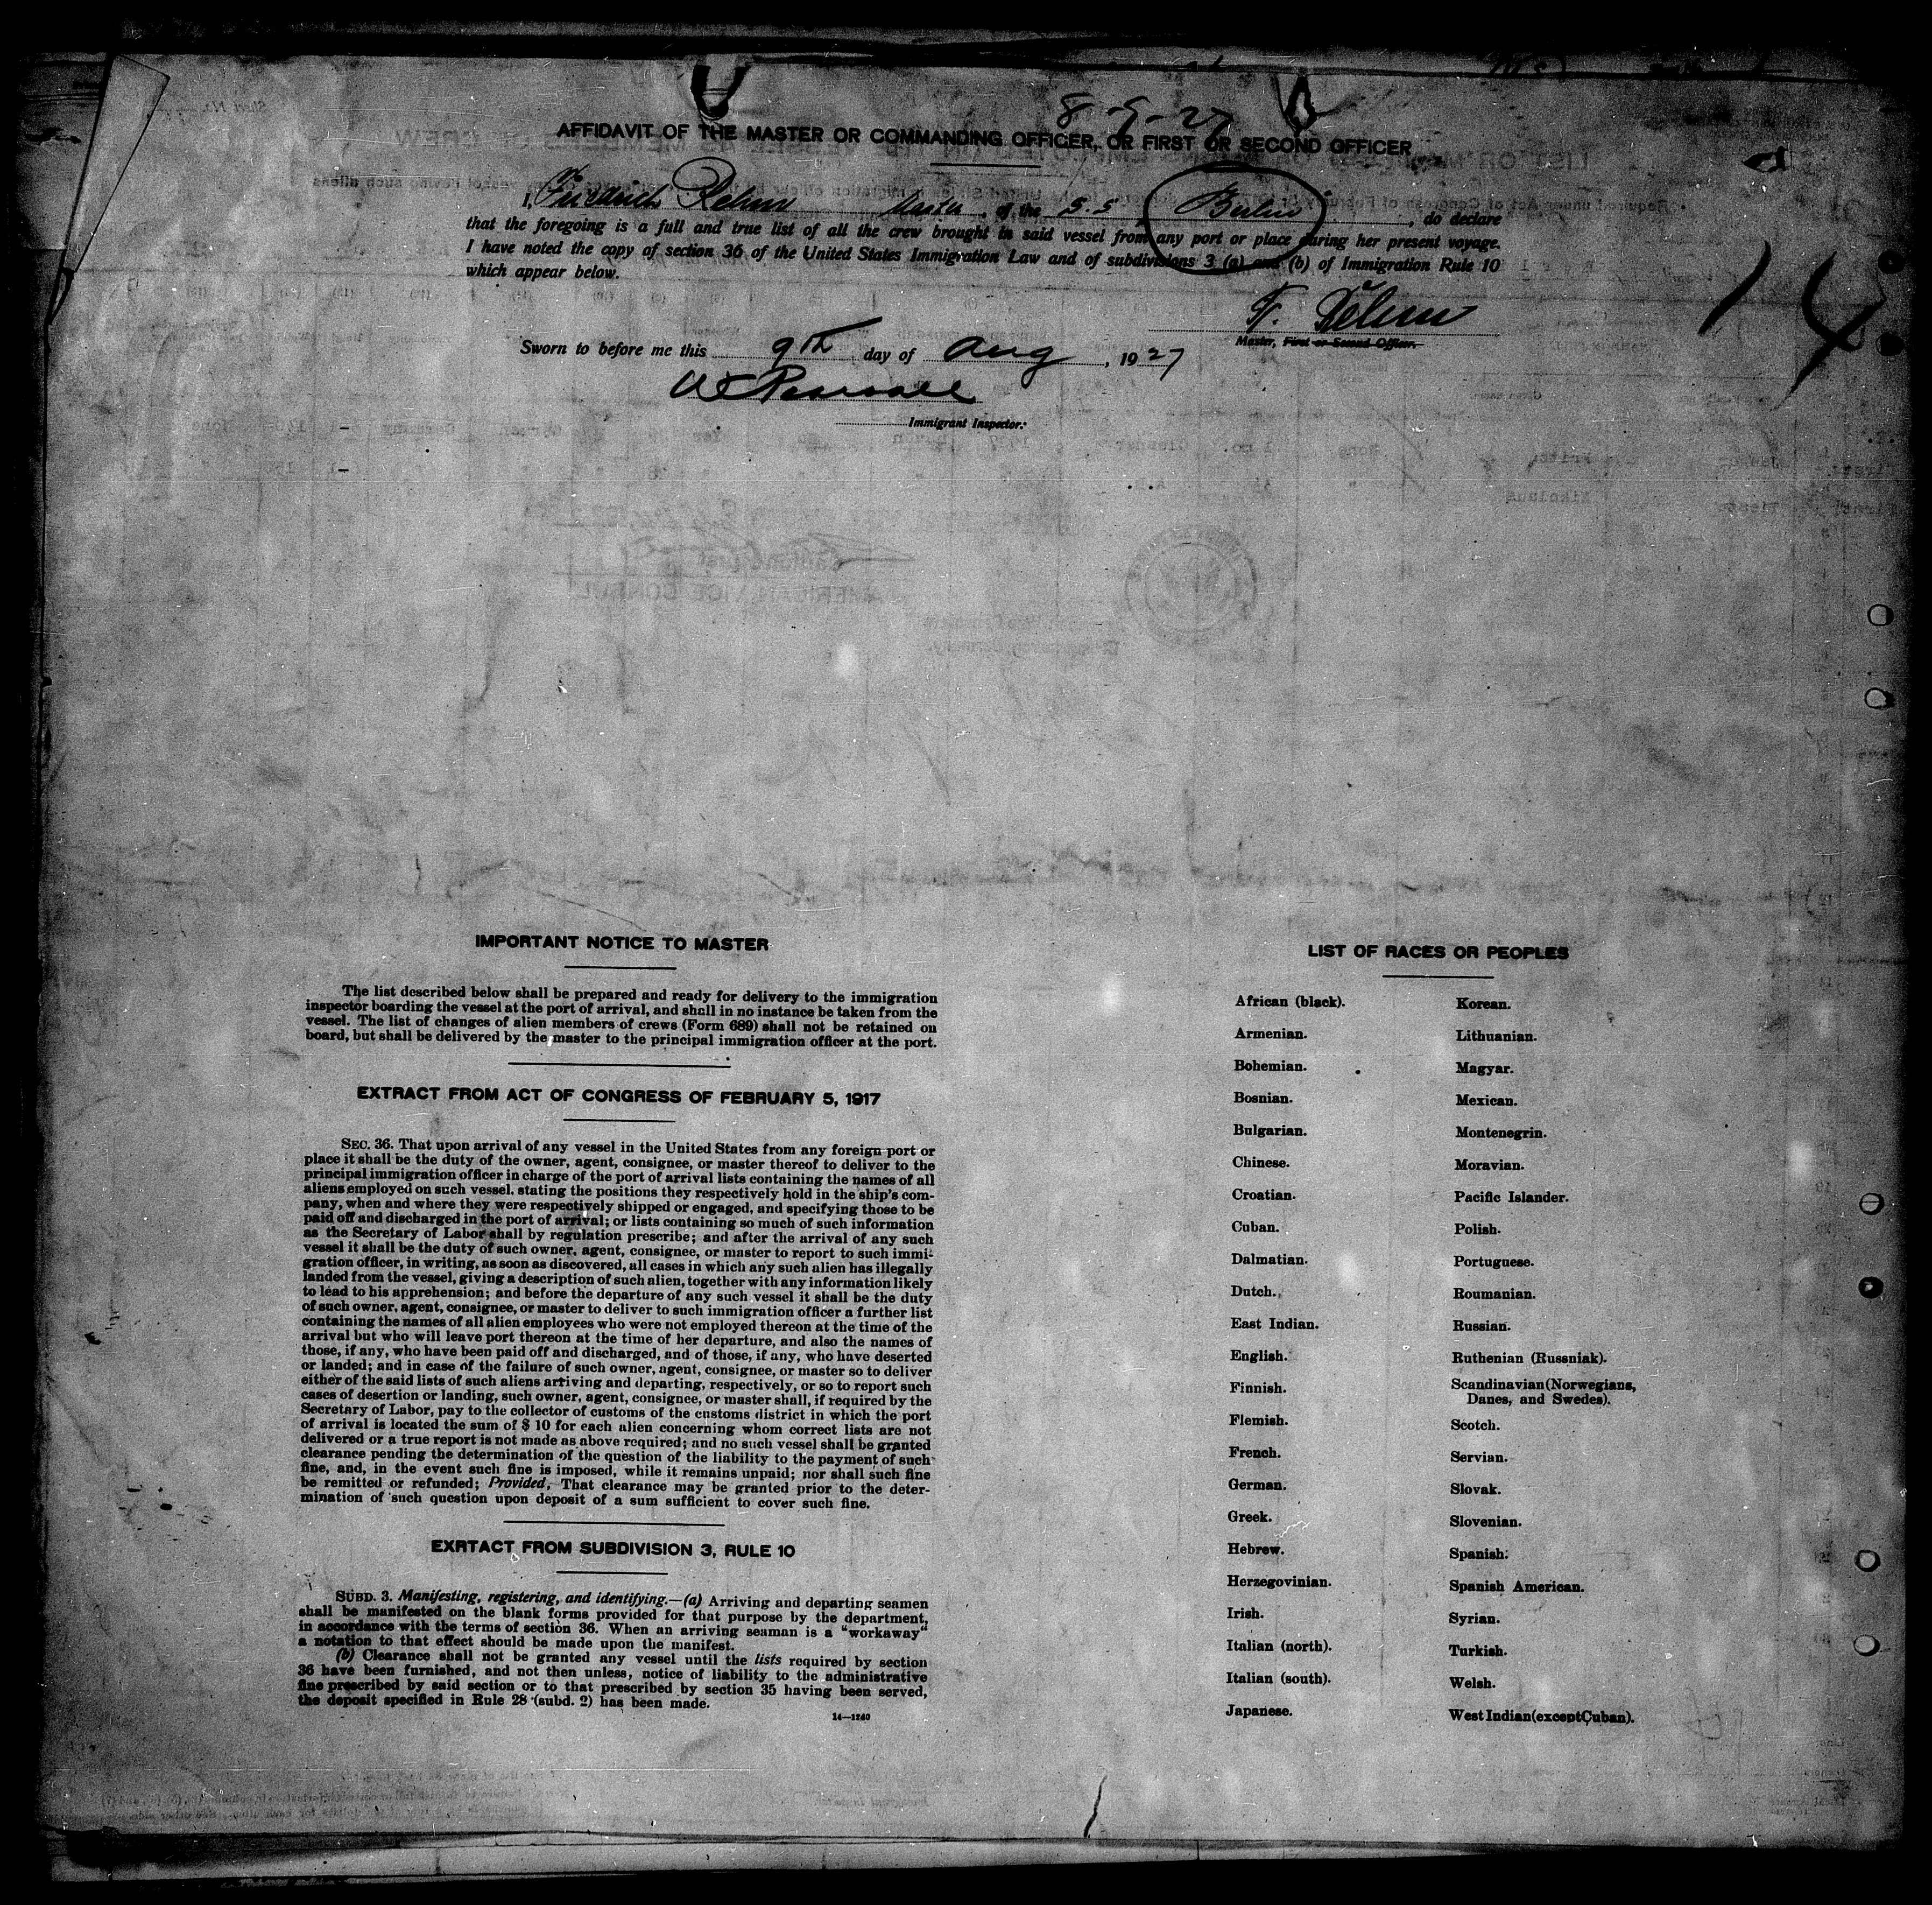 8-9-27
AFFIDAVIT OF THE MASTER OR COMMANDING OFFICER, OR FIRST OR SECOND OFFICER
I, Friedrich Rehm Master, of the S.S. Berlin, do declare
that the foregoing is a full and true list of all the crew brought in said vessel from any port or place during her present voyage.
I have noted the copy of section 36 of the United States Immigration Law and of subdivisions 3 (a) and (b) of Immigration Rule 10
which appear below.
14
F.
Master, First or Second Officer.
Sworn to before me this 9th day of Aug, 1927
Immigrant Inspector.
IMPORTANT NOTICE TO MASTER
The list described below shall be prepared and ready for delivery to the immigration
inspector boarding the vessel at the port of arrival, and shall in no instance be taken from the
vessel. The list of changes of alien members of crews (Form 689) shall not be retained on
board, but shall be delivered by the master to the principal immigration officer at the port.
EXTRACT FROM ACT OF CONGRESS OF FEBRUARY 5, 1917
SEC. 36. That upon arrival of any vessel in the United States from any foreign port or
place it shall be the duty of the owner, agent, consignee, or master thereof to deliver to the
principal immigration officer in charge of the port of arrival lists containing the names of all
aliens employed on such vessel, stating the positions they respectively hold in the ship's com-
pany, when and where they were respectively shipped or engaged, and specifying those to be
paid off and discharged in the port of arrival; or lists containing so much of such information
as the Secretary of Labor shall by regulation prescribe; and after the arrival of any such
vessel it shall be the duty of such owner, agent, consignee, or master to report to such immi-
gration officer, in writing, as soon as discovered, all cases in which any such alien has illegally
landed from the vessel, giving a description of such alien, together with any information likely
to lead to his apprehension; and before the departure of any such vessel it shall be the duty
of such owner, agent, consignee, or master to deliver to such immigration officer a further list
containing the names of all alien employees who were not employed thereon at the time of the
arrival but who will leave port thereon at the time of her departure, and also the names of
those, if any, who have been paid off and discharged, and of those, if any, who have deserted
or landed; and in case of the failure of such owner, agent, consignee, or master so to deliver
either of the said lists of such aliens arriving and departing, respectively, or so to report such
cases of desertion or landing, such owner, agent, consignee, or master shall, if required by the
Secretary of Labor, pay to the collector of customs of the customs district in which the port
of arrival is located the sum of $ 10 for each alien concerning whom correct lists are not
delivered or a true report is not made as above required; and no such vessel shall be granted
clearance pending the determination of the question of the liability to the payment of such
fine, and, in the event such fine is imposed, while it remains unpaid; nor shall such fine
be remitted or refunded; Provided, That clearance may be granted prior to the deter-
mination of such question upon deposit of a sum sufficient to cover such fine.
EXRTACT FROM SUBDIVISION 3, RULE 10
SUBD. 3. Manifesting, registering, and identifying.—(a) Arriving and departing seamen
shall be manifested on the blank forms provided for that purpose by the department,
in accordance with the terms of section 36. When an arriving seaman is a "workaway"
a notation to that effect should be made upon the manifest.
(b) Clearance shall not be granted any vessel until the lists required by section
36 have been furnished, and not then unless, notice of liability to the administrative
fine prescribed by said section or to that prescribed by section 35 having been served,
the deposit specified in Rule 28 (subd. 2) has been made.
14—1240
LIST OF RACES OR PEOPLES
African (black).
Armenian.
Bohemian.
Bosnian.
Bulgarian.
Chinese.
Croatian.
Cuban.
Dalmatian.
Dutch.
East Indian.
English.
Finnish.
Flemish.
French.
German.
Greek.
Hebrew.
Herzegovinian.
Irish.
Italian (north).
Italian (south).
Japanese.
Korean.
Lithuanian.
Magyar.
Mexican.
Montenegrin.
Moravian.
Pacific Islander.
Polish.
Portuguese.
Roumanian.
Russian.
Ruthenian (Russniak).
Scandinavian (Norwegians,
Danes, and Swedes).
Scotch.
Servian.
Slovak.
Slovenian.
Spanish.
Spanish American.
Syrian.
Turkish.
Welsh.
West Indian (except Cuban).